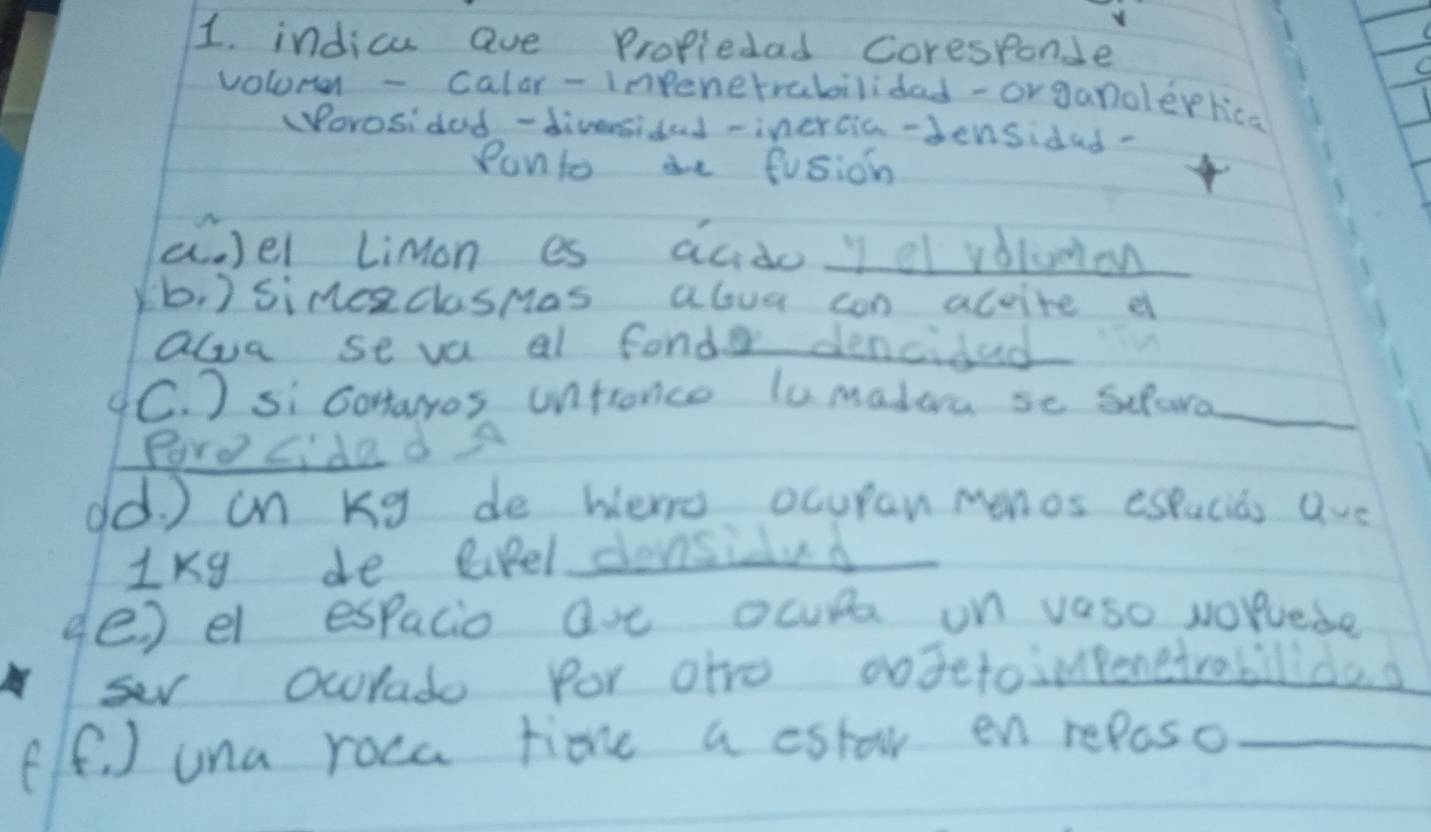 1. indicu Que Propiedad Coresponde
volomen - Calor - Impenetrabilidad - organoléptica
Porosidad - diversidad - inercia - densidad -
Ponto de fusión
a.) el Limon es ácido y el volumen
b.) si Mezclasmos agua con aceite el
agua se va al fondo dencidad
C.) si Cortamos un tronco la madera se separa
Porocidad
d.) un Kg de hierro ocupan menos espacios que
1 Kg de papel densidad
e.) el espacio que ocupa un vaso no puede
ser ocupado por otro objeto impenetrabilidad
f.) una roca tiene a estar en reposo